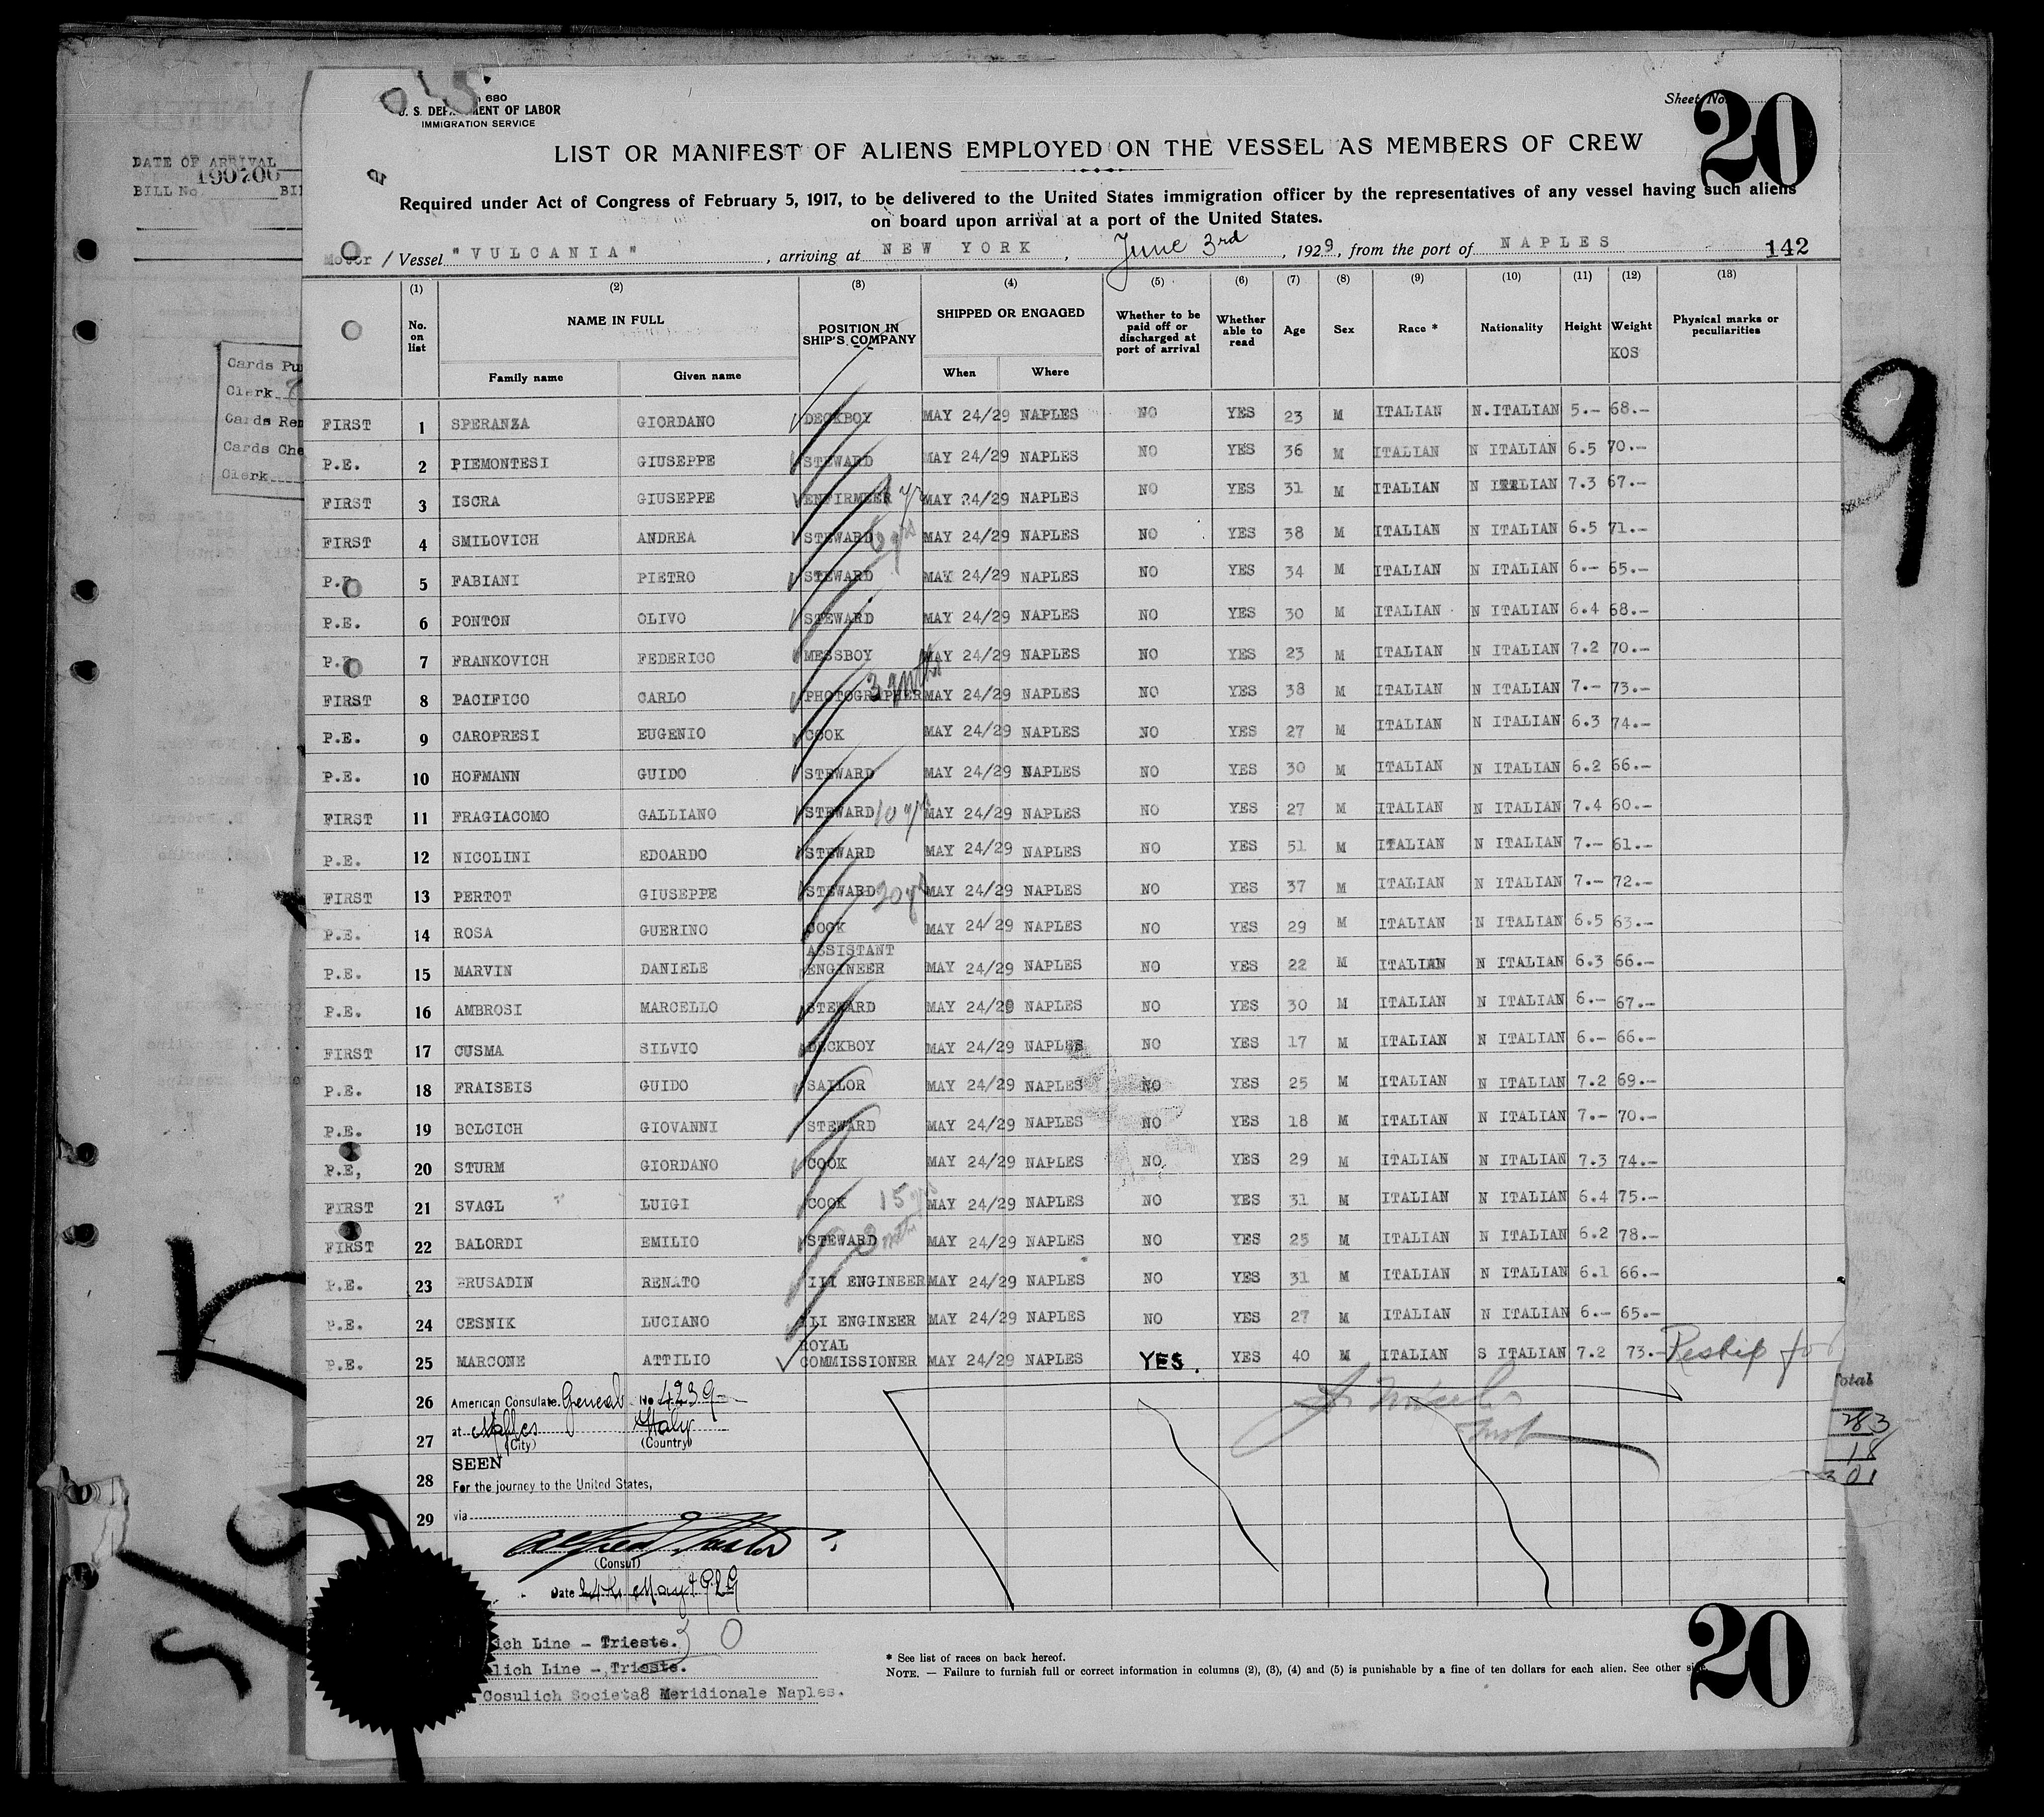 680
U. S. DEPARTMENT OF LABOR
IMMIGRATION SERVICE
Sheet No.
20
LIST OR MANIFEST OF ALIENS EMPLOYED ON THE VESSEL AS MEMBERS OF CREW
Required under Act of Congress of February 5, 1917, to be delivered to the United States immigration officer by the representatives of any vessel having such aliens
on board upon arrival at a port of the United States.
Motor / Vessel "VULCANIA", arriving at NEW YORK, June 3rd, 1929, from the port of NAPLES 142
DATE OF ARRIVAL
190706
BILL No.
Cards Pu
Clerk
Cards Re
Cards Che
Clerk
(1) (2) (3) (4) (5) (6) (7) (8) (9) (10) (11) (12) (13)
No. on list NAME IN FULL POSITION IN SHIP'S COMPANY SHIPPED OR ENGAGED Whether to be paid off or discharged at port of arrival Whether able to read Age Sex Race * Nationality Height Weight KOS Physical marks or peculiarities
Family name Given name When Where
FIRST 1 SPERANZA GIORDANO DECKBOY MAY 24/29 NAPLES NO YES 23 M ITALIAN N.ITALIAN 5.- 68.-
P.E. 2 PIEMONTESI GIUSEPPE STEWARD MAY 24/29 NAPLES NO YES 36 M ITALIAN N ITALIAN 6.5 70.-
FIRST 3 ISCRA GIUSEPPE ENFIRMEER MAY 24/29 NAPLES NO YES 31 M ITALIAN N ITALIAN 7.3 67.-
FIRST 4 SMILOVICH ANDREA STEWARD 6 yrs MAY 24/29 NAPLES NO YES 38 M ITALIAN N ITALIAN 6.5 71.-
P.E. 5 FABIANI PIETRO STEWARD MAY 24/29 NAPLES NO YES 34 M ITALIAN N ITALIAN 6.- 65.-
P.E. 6 PONTON OLIVO STEWARD MAY 24/29 NAPLES NO YES 30 M ITALIAN N ITALIAN 6.4 68.-
P.E. 7 FRANKOVICH FEDERICO MESSBOY MAY 24/29 NAPLES NO YES 23 M ITALIAN N ITALIAN 7.2 70.-
FIRST 8 PACIFICO CARLO PHOTOGRAPHER 3 mths MAY 24/29 NAPLES NO YES 38 M ITALIAN N ITALIAN 7.- 73.-
P.E. 9 CAROPRESI EUGENIO COOK MAY 24/29 NAPLES NO YES 27 M ITALIAN N ITALIAN 6.3 74.-
P.E. 10 HOFMANN GUIDO STEWARD MAY 24/29 NAPLES NO YES 30 M ITALIAN N ITALIAN 6.2 66.-
FIRST 11 FRAGIACOMO GALLIANO STEWARD 10 yrs MAY 24/29 NAPLES NO YES 27 M ITALIAN N ITALIAN 7.4 60.-
P.E. 12 NICOLINI EDOARDO STEWARD MAY 24/29 NAPLES NO YES 51 M ITALIAN N ITALIAN 7.- 61.-
FIRST 13 PERTOT GIUSEPPE STEWARD 20 yrs MAY 24/29 NAPLES NO YES 37 M ITALIAN N ITALIAN 7.- 72.-
P.E. 14 ROSA GUERINO COOK MAY 24/29 NAPLES NO YES 29 M ITALIAN N ITALIAN 6.5 63.-
P.E. 15 MARVIN DANIELE ASSISTANT ENGINEER MAY 24/29 NAPLES NO YES 22 M ITALIAN N ITALIAN 6.3 66.-
P.E. 16 AMBROSI MARCELLO STEWARD MAY 24/29 NAPLES NO YES 30 M ITALIAN N ITALIAN 6.- 67.-
FIRST 17 CUSMA SILVIO DECKBOY MAY 24/29 NAPLES NO YES 17 M ITALIAN N ITALIAN 6.- 66.-
P.E. 18 FRAISEIS GUIDO SAILOR MAY 24/29 NAPLES NO YES 25 M ITALIAN N ITALIAN 7.2 69.-
P.E. 19 BOLCICH GIOVANNI STEWARD MAY 24/29 NAPLES NO YES 18 M ITALIAN N ITALIAN 7.- 70.-
P.E, 20 STURM GIORDANO COOK MAY 24/29 NAPLES NO YES 29 M ITALIAN N ITALIAN 7.3 74.-
FIRST 21 SVAGL LUIGI COOK 15 yrs MAY 24/29 NAPLES NO YES 31 M ITALIAN N ITALIAN 6.4 75.-
FIRST 22 BALORDI EMILIO STEWARD 8 mths MAY 24/29 NAPLES NO YES 25 M ITALIAN N ITALIAN 6.2 78.-
P.E. 23 BRUSADIN RENATO III ENGINEER MAY 24/29 NAPLES NO YES 31 M ITALIAN N ITALIAN 6.1 66.-
P.E. 24 CESNIK LUCIANO III ENGINEER MAY 24/29 NAPLES NO YES 27 M ITALIAN N ITALIAN 6.- 65.-
P.E. 25 MARCONE ATTILIO ROYAL COMMISSIONER MAY 24/29 NAPLES YES. YES 40 M ITALIAN S ITALIAN 7.2 73.-
26 American Consulate General No 4239
at Naples Italy
27 (City) (Country)
SEEN
28 For the journey to the United States,
29 via
(Consul)
Date 24th May 1929
9
Total
283
18
301
ich Line - Trieste. 30
lich Line - Trieste.
Cosulich Societa8 Meridionale Naples.
* See list of races on back hereof.
NOTE. — Failure to furnish full or correct information in columns (2), (3), (4) and (5) is punishable by a fine of ten dollars for each alien. See other side.
20